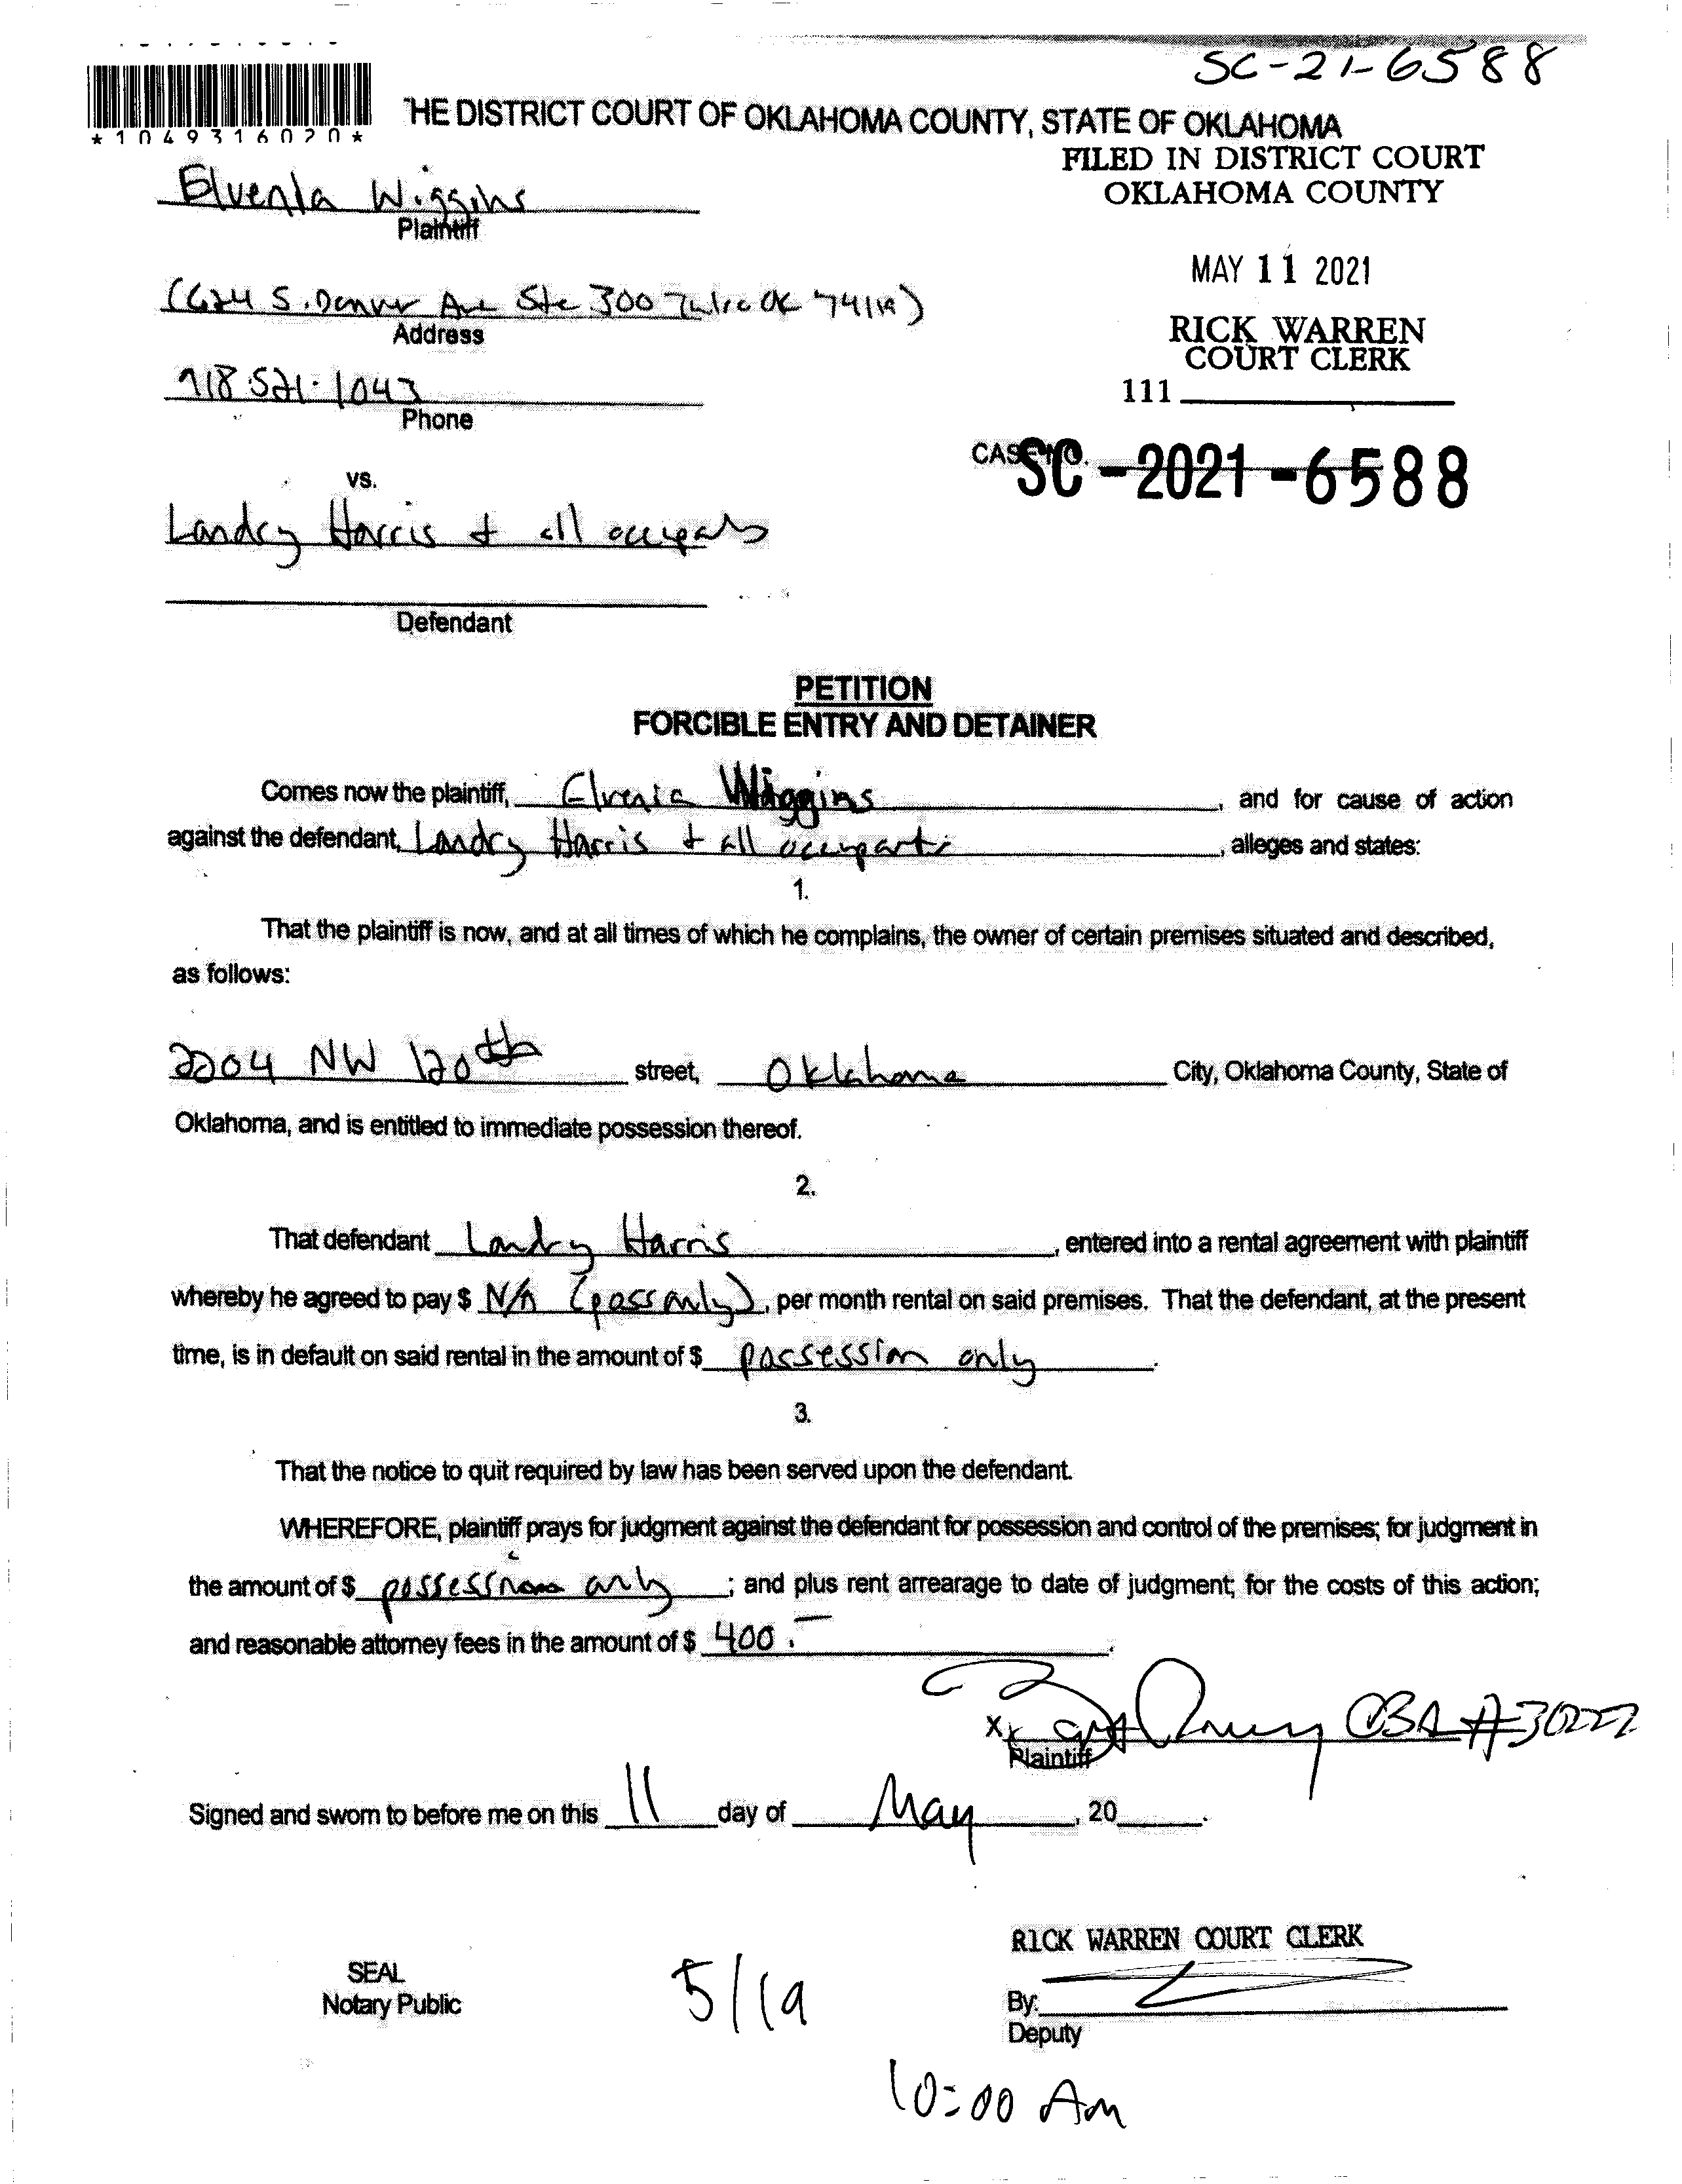 SC-21-6588
*1049316020*
HE DISTRICT COURT OF OKLAHOMA COUNTY, STATE OF OKLAHOMA
FILED IN DISTRICT COURT
OKLAHOMA COUNTY
Elvenia Wiggins
Plaintiff
MAY 11 2021
(624 S. Denver Ave Ste 300 Tulsa OK 74119)
Address
RICK WARREN
COURT CLERK
918 521-1043
Phone
111
CASE NO. SC-2021-6588
vs.
Landry Harris + all occupants
Defendant
PETITION
FORCIBLE ENTRY AND DETAINER
Comes now the plaintiff, Elvenia Wiggins, and for cause of action
against the defendant, Landry Harris + all occupants, alleges and states:
1.
That the plaintiff is now, and at all times of which he complains, the owner of certain premises situated and described,
as follows:
2204 NW 120th street, Oklahoma City, Oklahoma County, State of
Oklahoma, and is entitled to immediate possession thereof.
2.
That defendant Landry Harris, entered into a rental agreement with plaintiff
whereby he agreed to pay $ N/A (poss only), per month rental on said premises. That the defendant, at the present
time, is in default on said rental in the amount of $ possession only.
3.
That the notice to quit required by law has been served upon the defendant.
WHEREFORE, plaintiff prays for judgment against the defendant for possession and control of the premises; for judgment in
the amount of $ possession only; and plus rent arrearage to date of judgment; for the costs of this action;
and reasonable attorney fees in the amount of $ 400.-.
X OBA #30222
Plaintiff
Signed and sworn to before me on this 11 day of May, 20.
RICK WARREN COURT CLERK
SEAL
Notary Public
5/19
By:
Deputy
10:00 Am